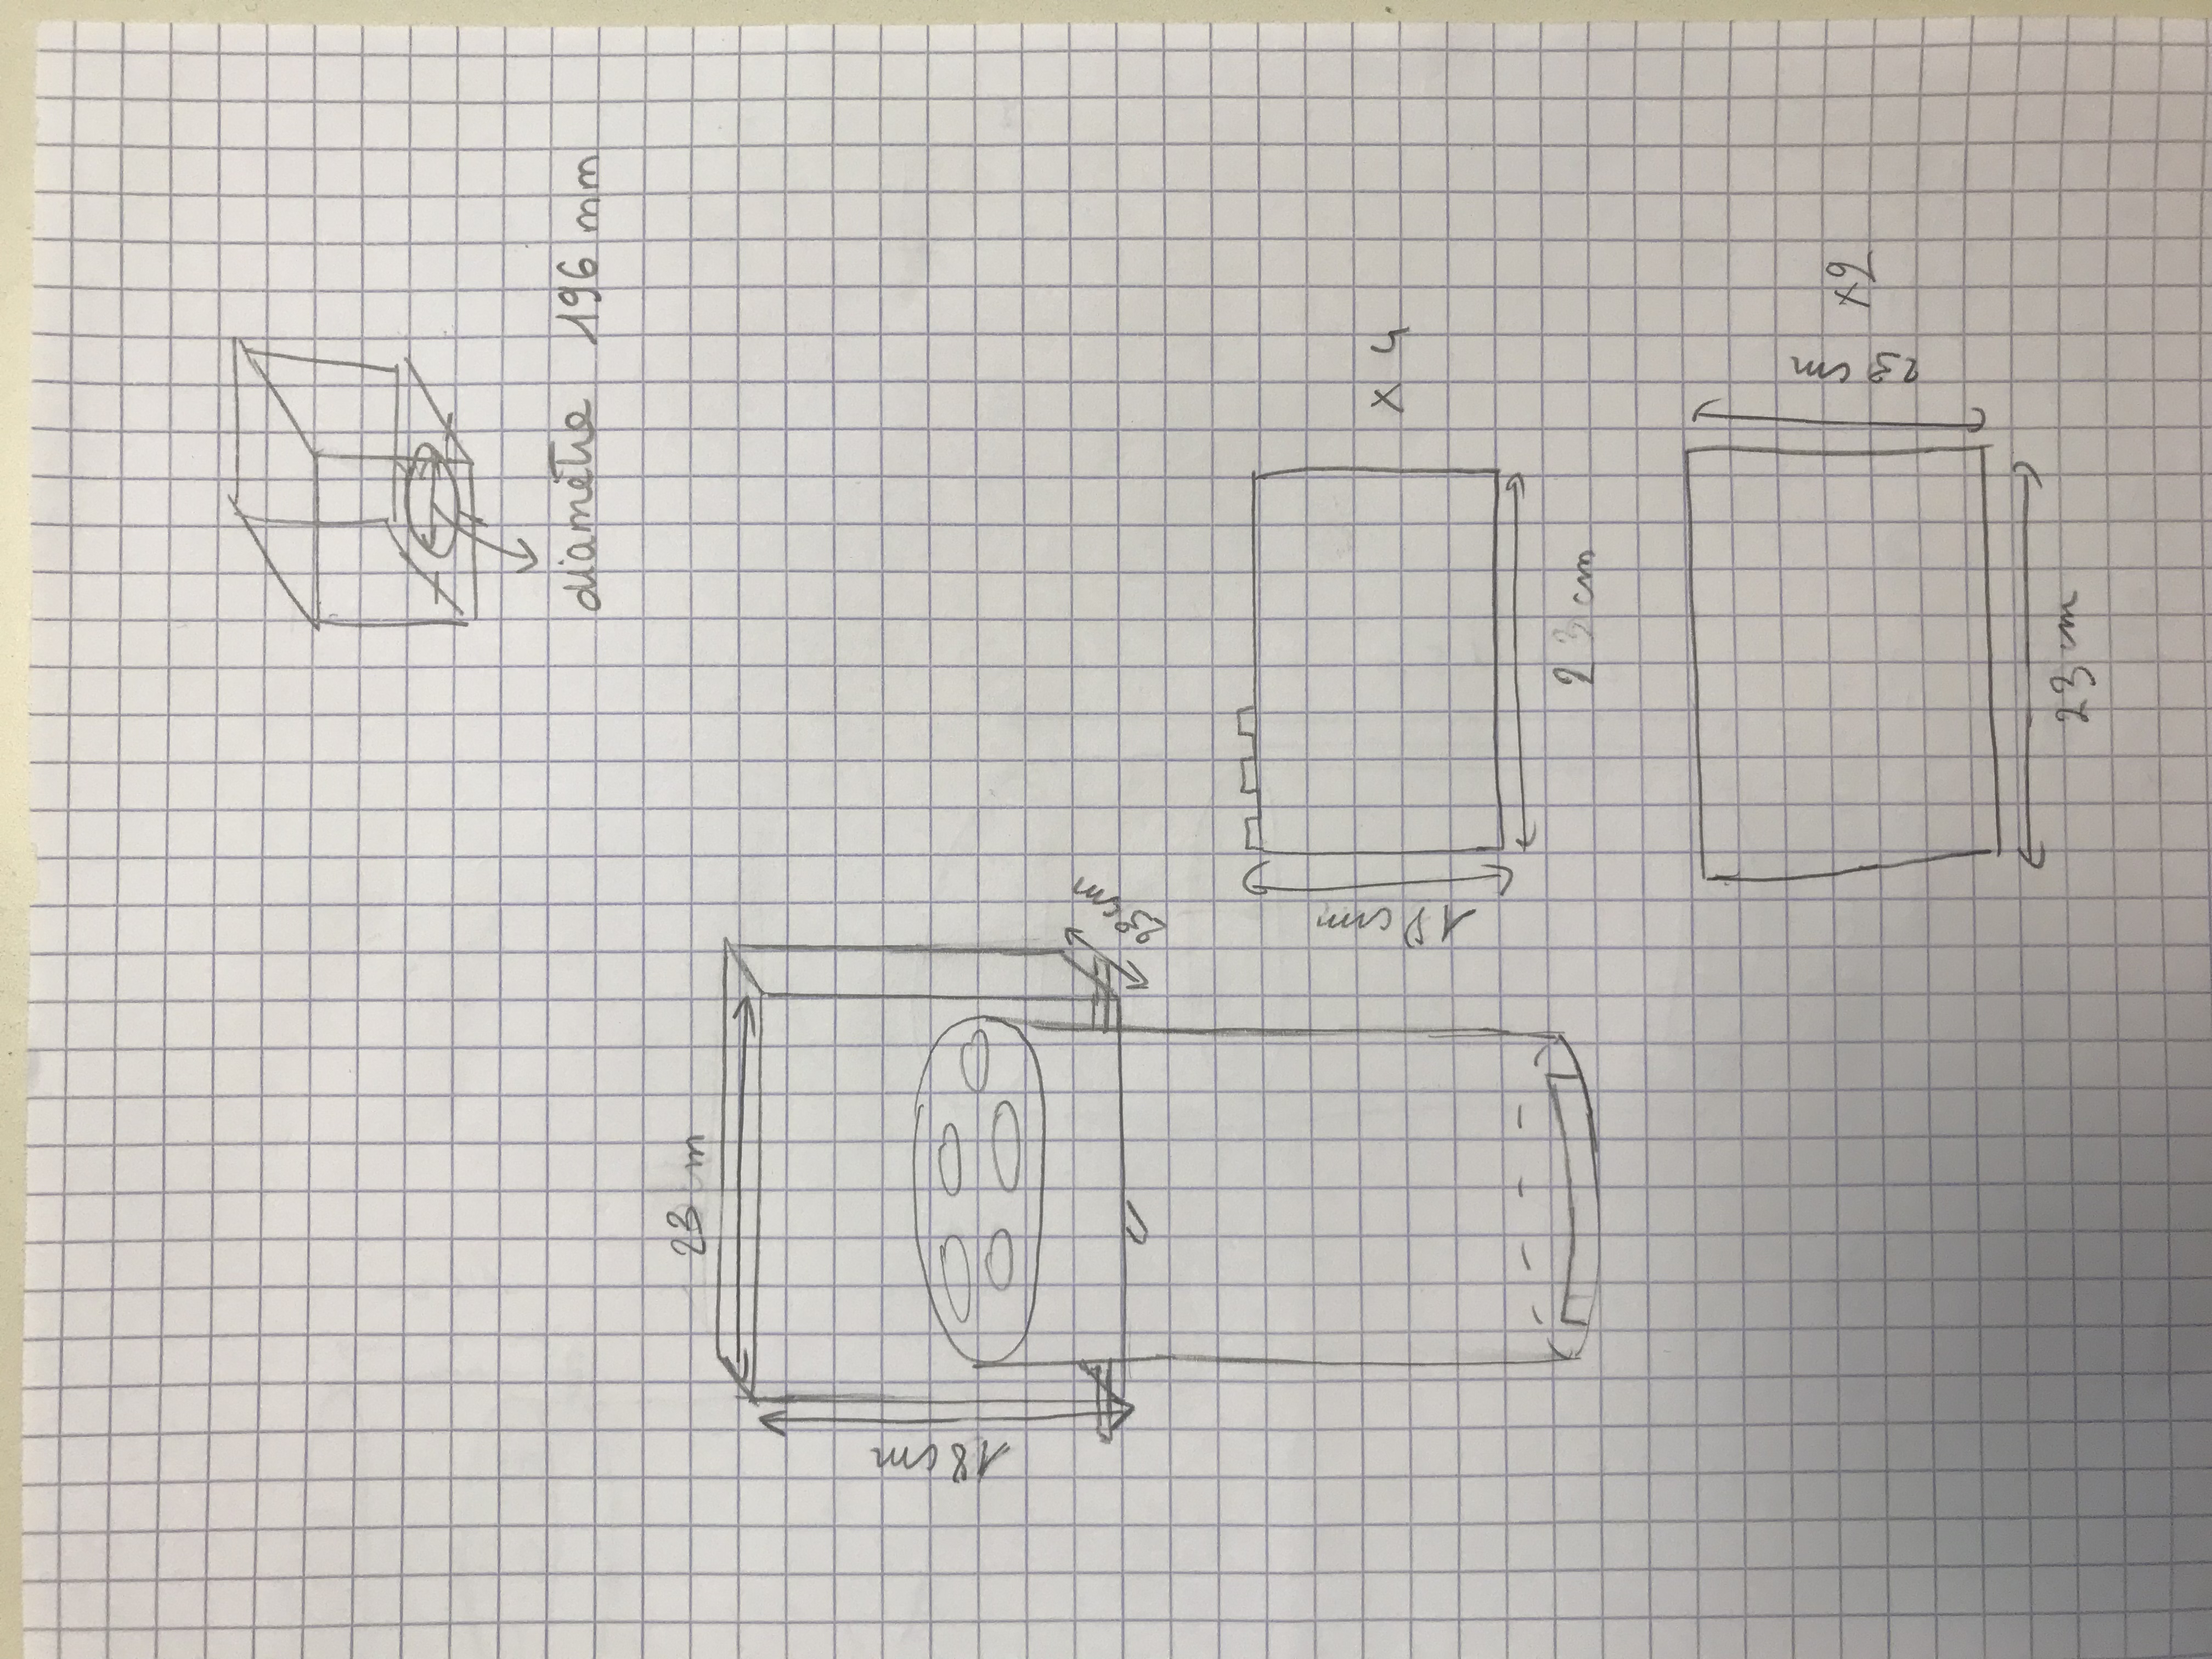 diamètre 196 mm
23 cm
18 cm
23 cm
18 cm
x 4
23 cm
23 cm
x2
23 cm